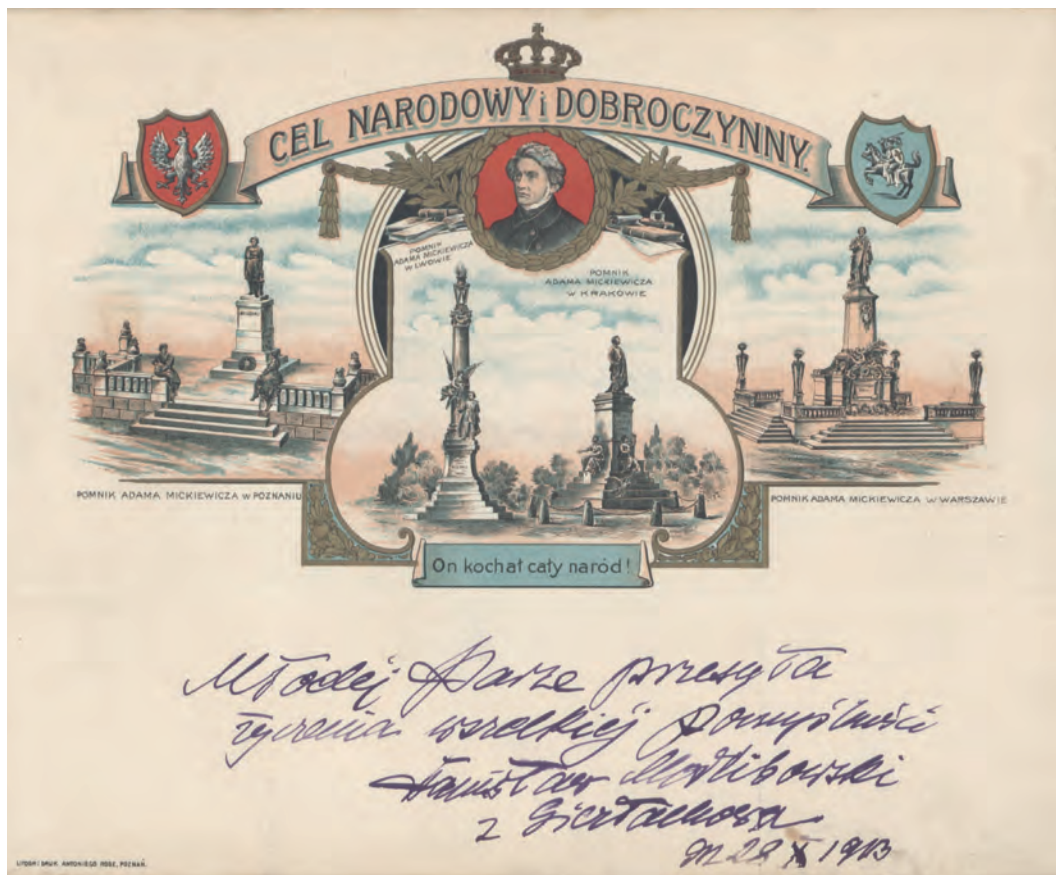 CEL NARODOWY i DOBROCZYNNY.
POMNIK
ADAMA MICKIEWICZA
W LWOWIE
POMNIK
ADAMA MICKIEWICZA
W KRAKOWIE
POMNIK ADAMA MICKIEWICZA W POZNANIU
POMNIK ADAMA MICKIEWICZA W WARSZAWIE
On kochał cały naród!
Młodej Parze przesyła
życzenia wszelkiej pomyślności
Stanisław Modlibowski
z Gierłachowa
28 X 1913
DRUK. ANTONIEGO ROSE, POZNAŃ.